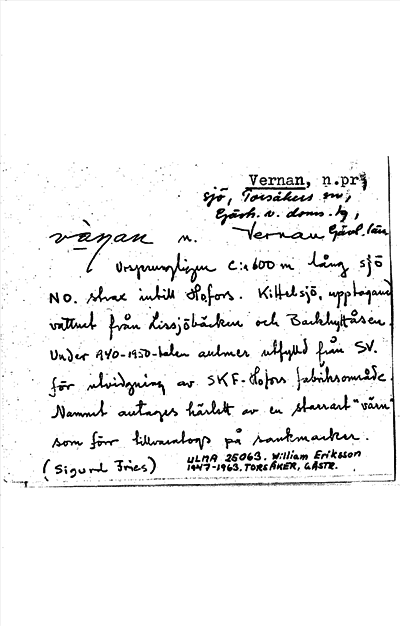 Vernan, n.pr;
sjö, Torsåkers sn,
Gästr. v. doms.lg,
Gävl. län
n. Vernan
Ursprungligen c:a 600 m lång sjö
NO. strax intill Hofors. Kittelsjö, upptagand
vattnet från Lissjöbäcken och Backhyttåsen.
Under 1940-1950-talen utfylld från SV.
för utvidgning av SKF-Hofors fabriksområde.
Namnet antages härlett av en starrart "värn"
som förr tillvaratogs på sankmarker.
(Sigurd Fries)
ULMA 25063. William Eriksson
1947-1963. TORSÅKER, GÄSTR.